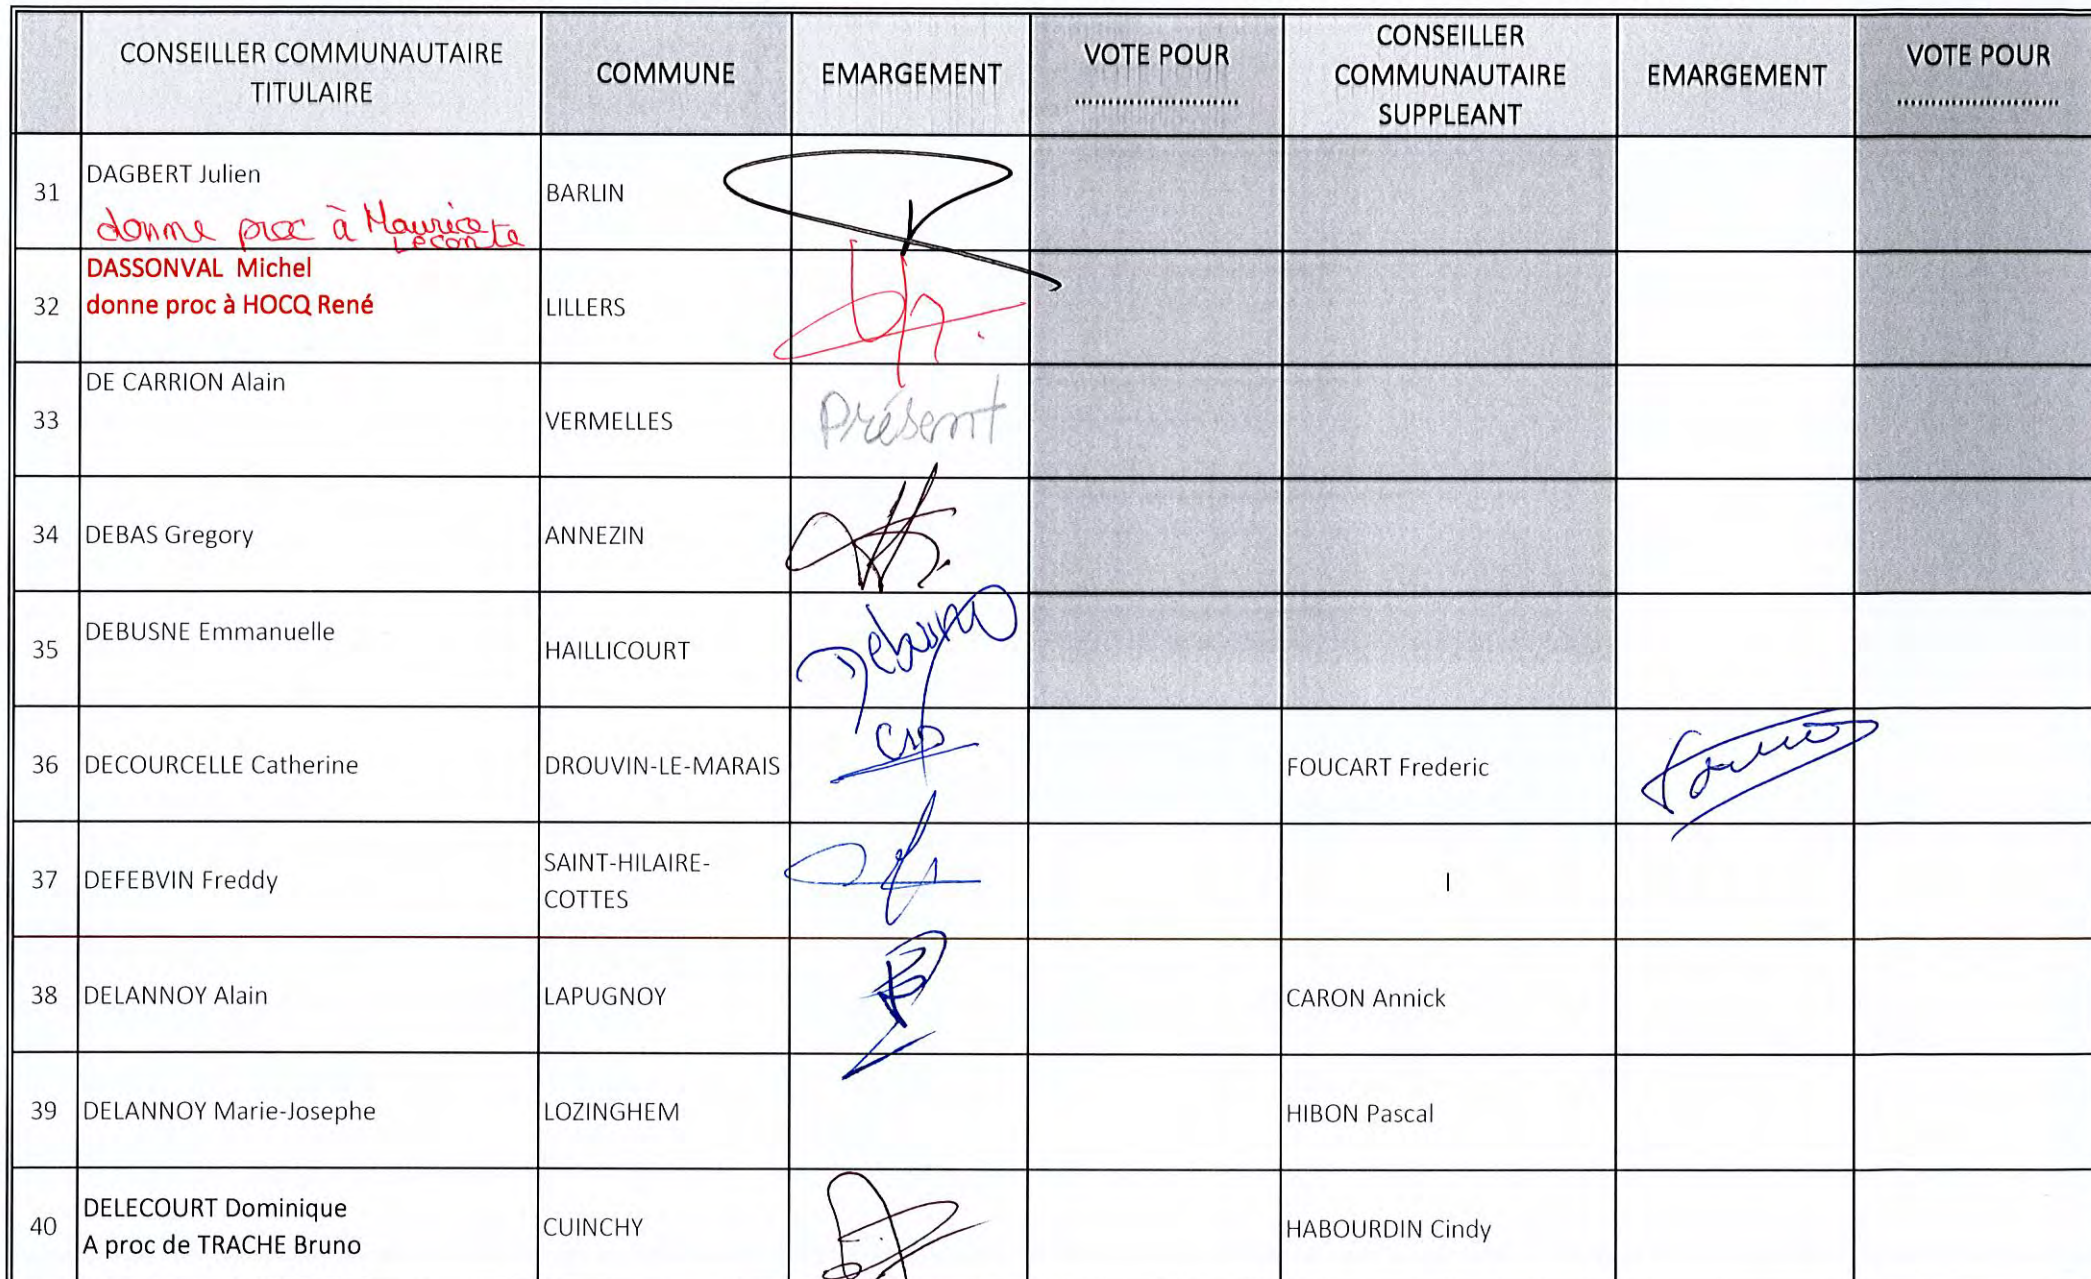 CONSEILLER COMMUNAUTAIRE
TITULAIRE
COMMUNE
EMARGEMENT
VOTE POUR
........................
CONSEILLER
COMMUNAUTAIRE
SUPPLEANT
EMARGEMENT
VOTE POUR
........................
31
DAGBERT Julien
donne proc à Maurice
Leconte
BARLIN
32
DASSONVAL Michel
donne proc à HOCQ René
LILLERS
33
DE CARRION Alain
VERMELLES
Présent
34
DEBAS Gregory
ANNEZIN
35
DEBUSNE Emmanuelle
HAILLICOURT
Debusne
36
DECOURCELLE Catherine
DROUVIN-LE-MARAIS
FOUCART Frederic
37
DEFEBVIN Freddy
SAINT-HILAIRE-
COTTES
38
DELANNOY Alain
LAPUGNOY
CARON Annick
39
DELANNOY Marie-Josephe
LOZINGHEM
HIBON Pascal
40
DELECOURT Dominique
A proc de TRACHE Bruno
CUINCHY
HABOURDIN Cindy